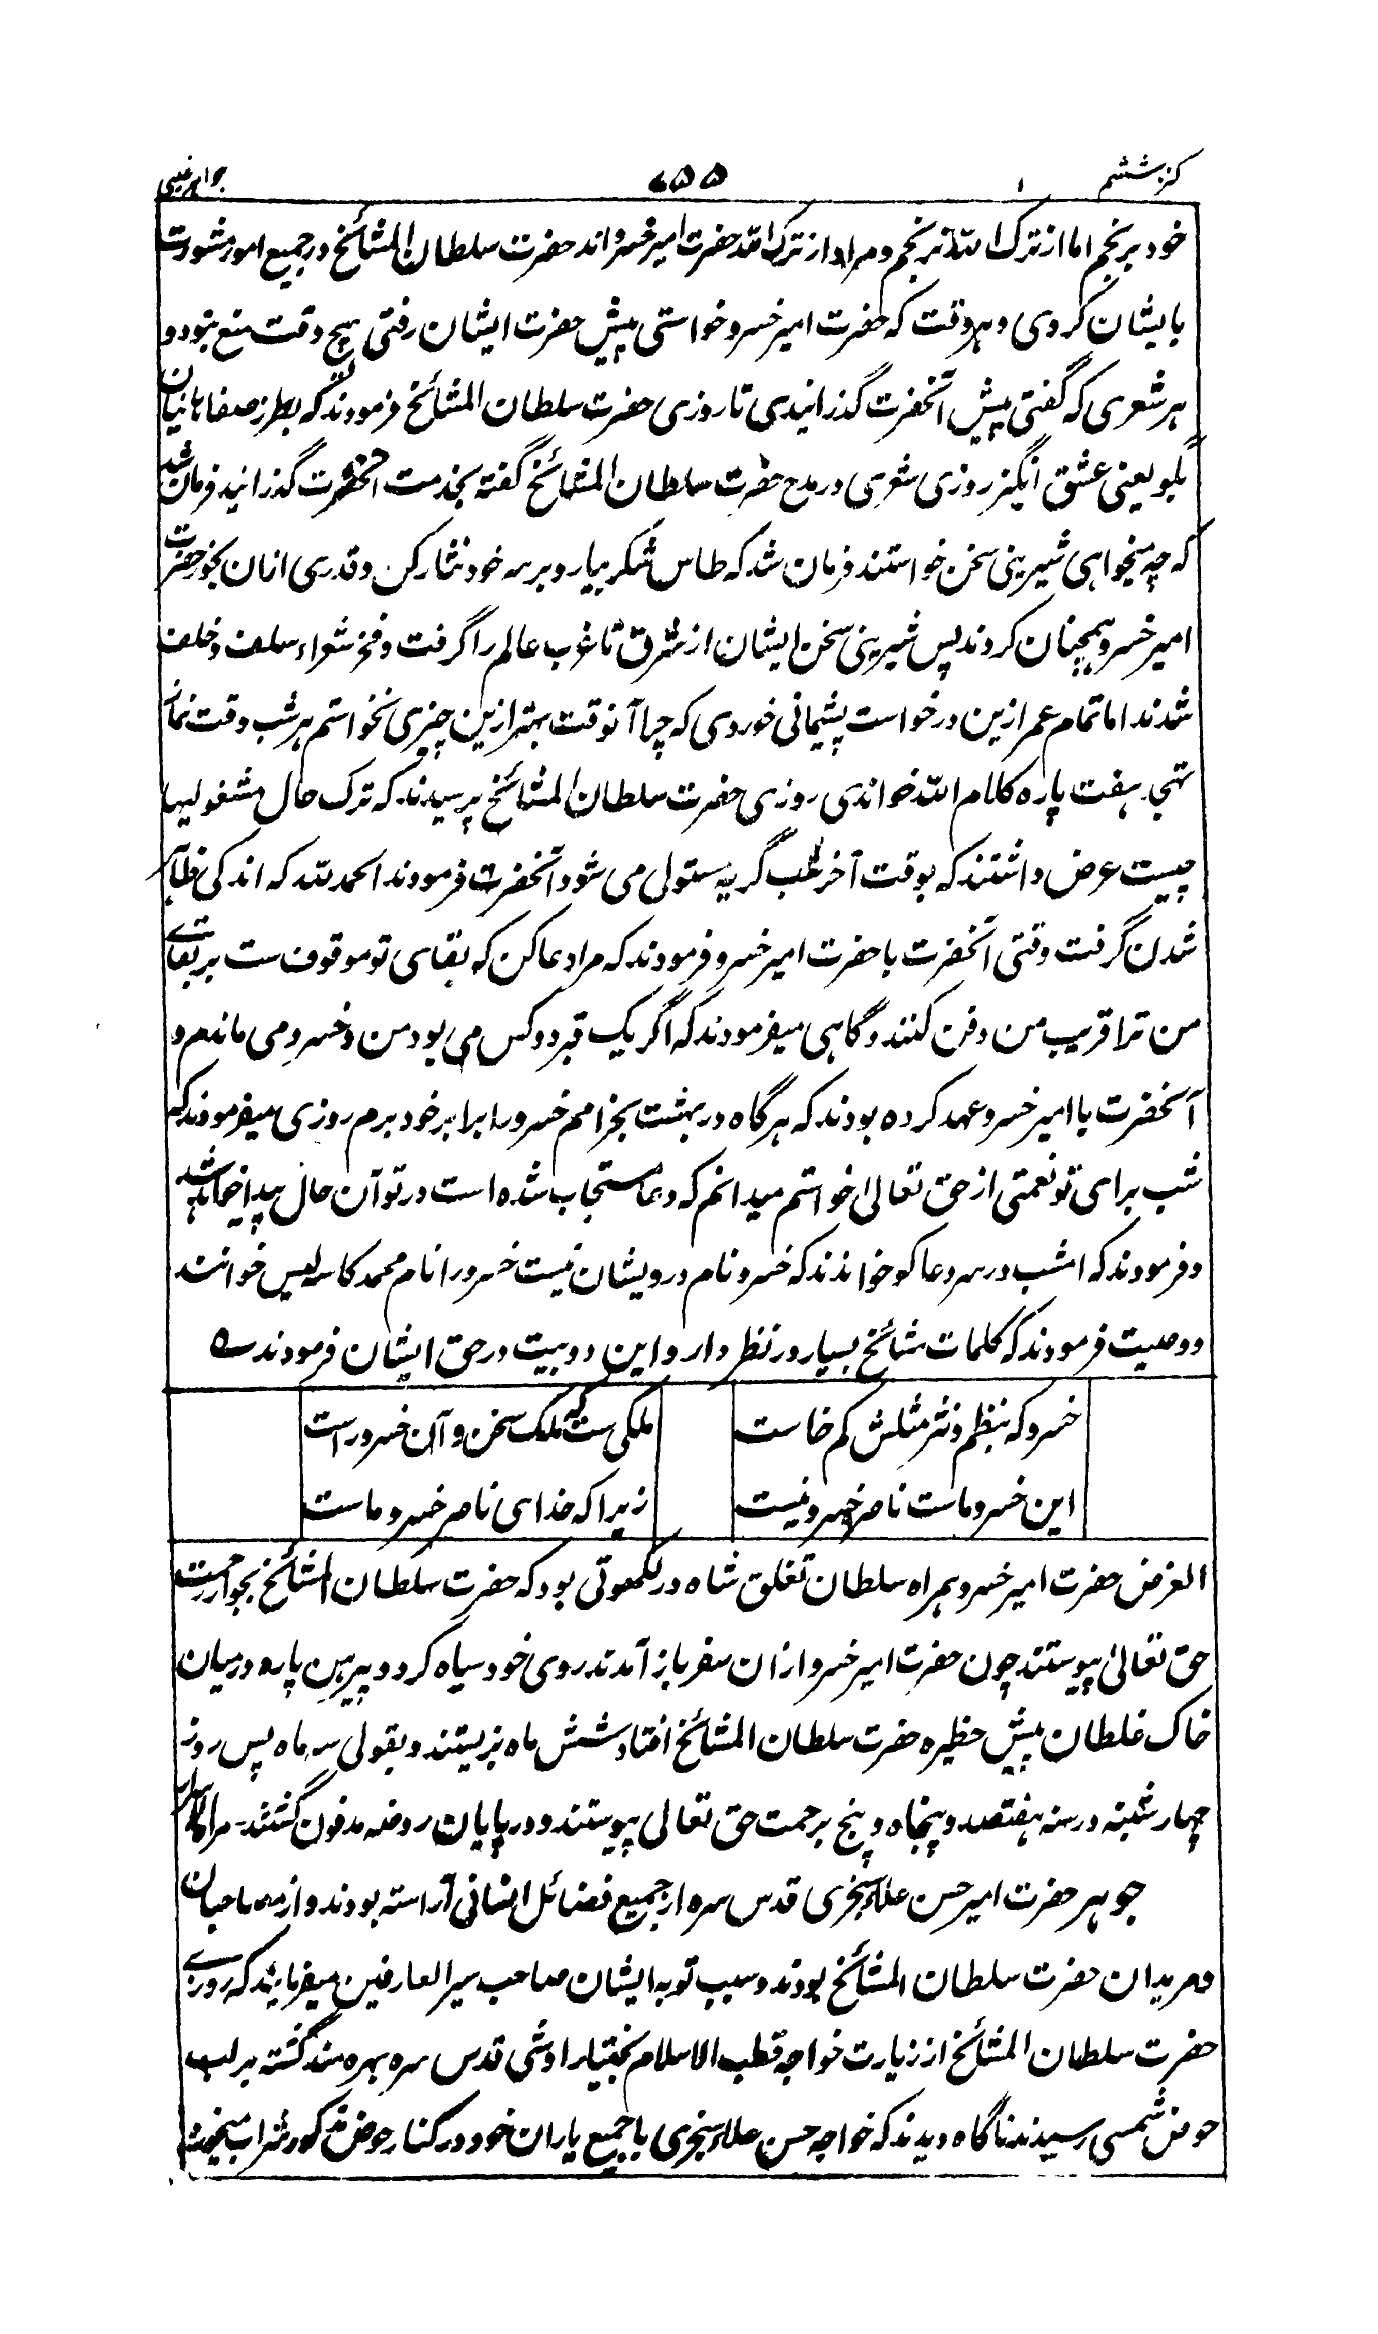 کنز ششم ۶۵۵ جواهر غیبی
خود برنجم اما از ترک الله نرنجم و مراد از ترک الله حضرت امیر خسرو اند حضرت سلطان المشائخ در جمیع امور مشورت
بایشان کردی و هر وقت که حضرت امیر خسرو خواستی پیش حضرت ایشان رفتی هیچ وقت منع نبود و
هر شعری که گفتی پیش آنحضرت گذرانیدی تا روزی حضرت سلطان المشائخ فرمودند که بطرز صفاهانیان
بگو یعنی عشق انگیز روزی شعری در مدح حضرت سلطان المشائخ گفته بخدمت آنحضرت گذرانید فرمان شد
که چه میخواهی شیرینی سخن خواستند فرمان شد که طاس شکر بیار و بر سر خود نثار کن و قدری ازان بخور حضرت
امیر خسرو همچنان کردند پس شیرینی سخن ایشان از شرق تا غرب عالم را گرفت و فخر شعراء سلف و خلف
شدند اما تمام عمر ازین درخواست پشیمانی خوردی که چرا آنوقت بهتر ازین چیزی نخواستم هر شب وقت نماز
تهجد هفت پاره کلام الله خواندی روزی حضرت سلطان المشائخ پرسیدند که ترک حال مشغولیها
چیست عرض داشتند که بوقت آخر شب گریه مستولی می شود آنحضرت فرمودند الحمد لله که اندکی ظاهر
شدن گرفت وقتی آنحضرت با حضرت امیر خسرو فرمودند که مرا دعا کن که بقای تو موقوف ست بر بقای
من ترا قریب من دفن کنند و گاهی میفرمودند که اگر یک قبر دو کس می بود من و خسرو می ماندم و
آنحضرت با امیر خسرو عهد کرده بودند که هرگاه در بهشت بخرامم خسرو را برابر خود برم روزی میفرمودند که
شب برای تو نعمتی از حق تعالی خواستم میدانم که دعا مستجاب شده است در تو آن حال پیدا خواهد شد
و فرمودند که امشب در سر دعا گو خواندند که خسرو نام درویشان نیست خسرو را نام محمد کاسه لیس خوانند
و وصیت فرمودند که کلمات مشائخ بسیار در نظر دار و این دو بیت در حق ایشان فرمودند ؎
خسرو که بنظم و نثر مثلش کم خاست ملکی ست که ملک سخن و آن خسرو راست
این خسرو ماست ناصر خسرو نیست زیرا که خدای ناصر خسرو ماست
الغرض حضرت امیر خسرو همراه سلطان تغلق شاه در لکهنوتی بود که حضرت سلطان المشائخ بجوار رحمت
حق تعالی پیوستند چون حضرت امیر خسرو ازان سفر باز آمدند روی خود سیاه کرد و پیرهن پاره در میان
خاک غلطان پیش حظیره حضرت سلطان المشائخ افتاد شش ماه بزیستند و بقولی سه ماه پس روز
چهار شنبه در سنه هفتصد و پنجاه و پنج برحمت حق تعالی پیوستند و در پایان روضه مدفون گشتند
جوهر حضرت امیر حسن علاء سنجری قدس سره از جمیع فضائل انسانی آراسته بودند و از مصاحبان
و مریدان حضرت سلطان المشائخ بودند و سبب توبه ایشان صاحب سیر العارفین میفرمایند که روزے
حضرت سلطان المشائخ از زیارت خواجه قطب الاسلام بختیار اوشی قدس سره بهره مند گشته بر لب
حوض شمسی رسیدند ناگاه دیدند که خواجه حسن علاء سنجری با جمیع یاران خود در کنار حوض مذکور شراب میخورند